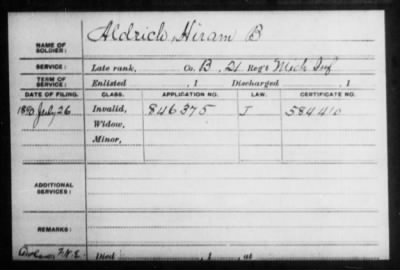 NAME OF SOLDIER: Aldrich, Hiram B
SERVICE: Late rank, Co. B, 21 Reg't Mich Inf
TERM OF SERVICE: Enlisted , 1 Discharged , 1
DATE OF FILING. CLASS. APPLICATION NO. LAW. CERTIFICATE NO.
1890 July 26 Invalid, 846375 J 584410
Widow,
Minor,
ADDITIONAL SERVICES:
REMARKS:
Died , 1 , at